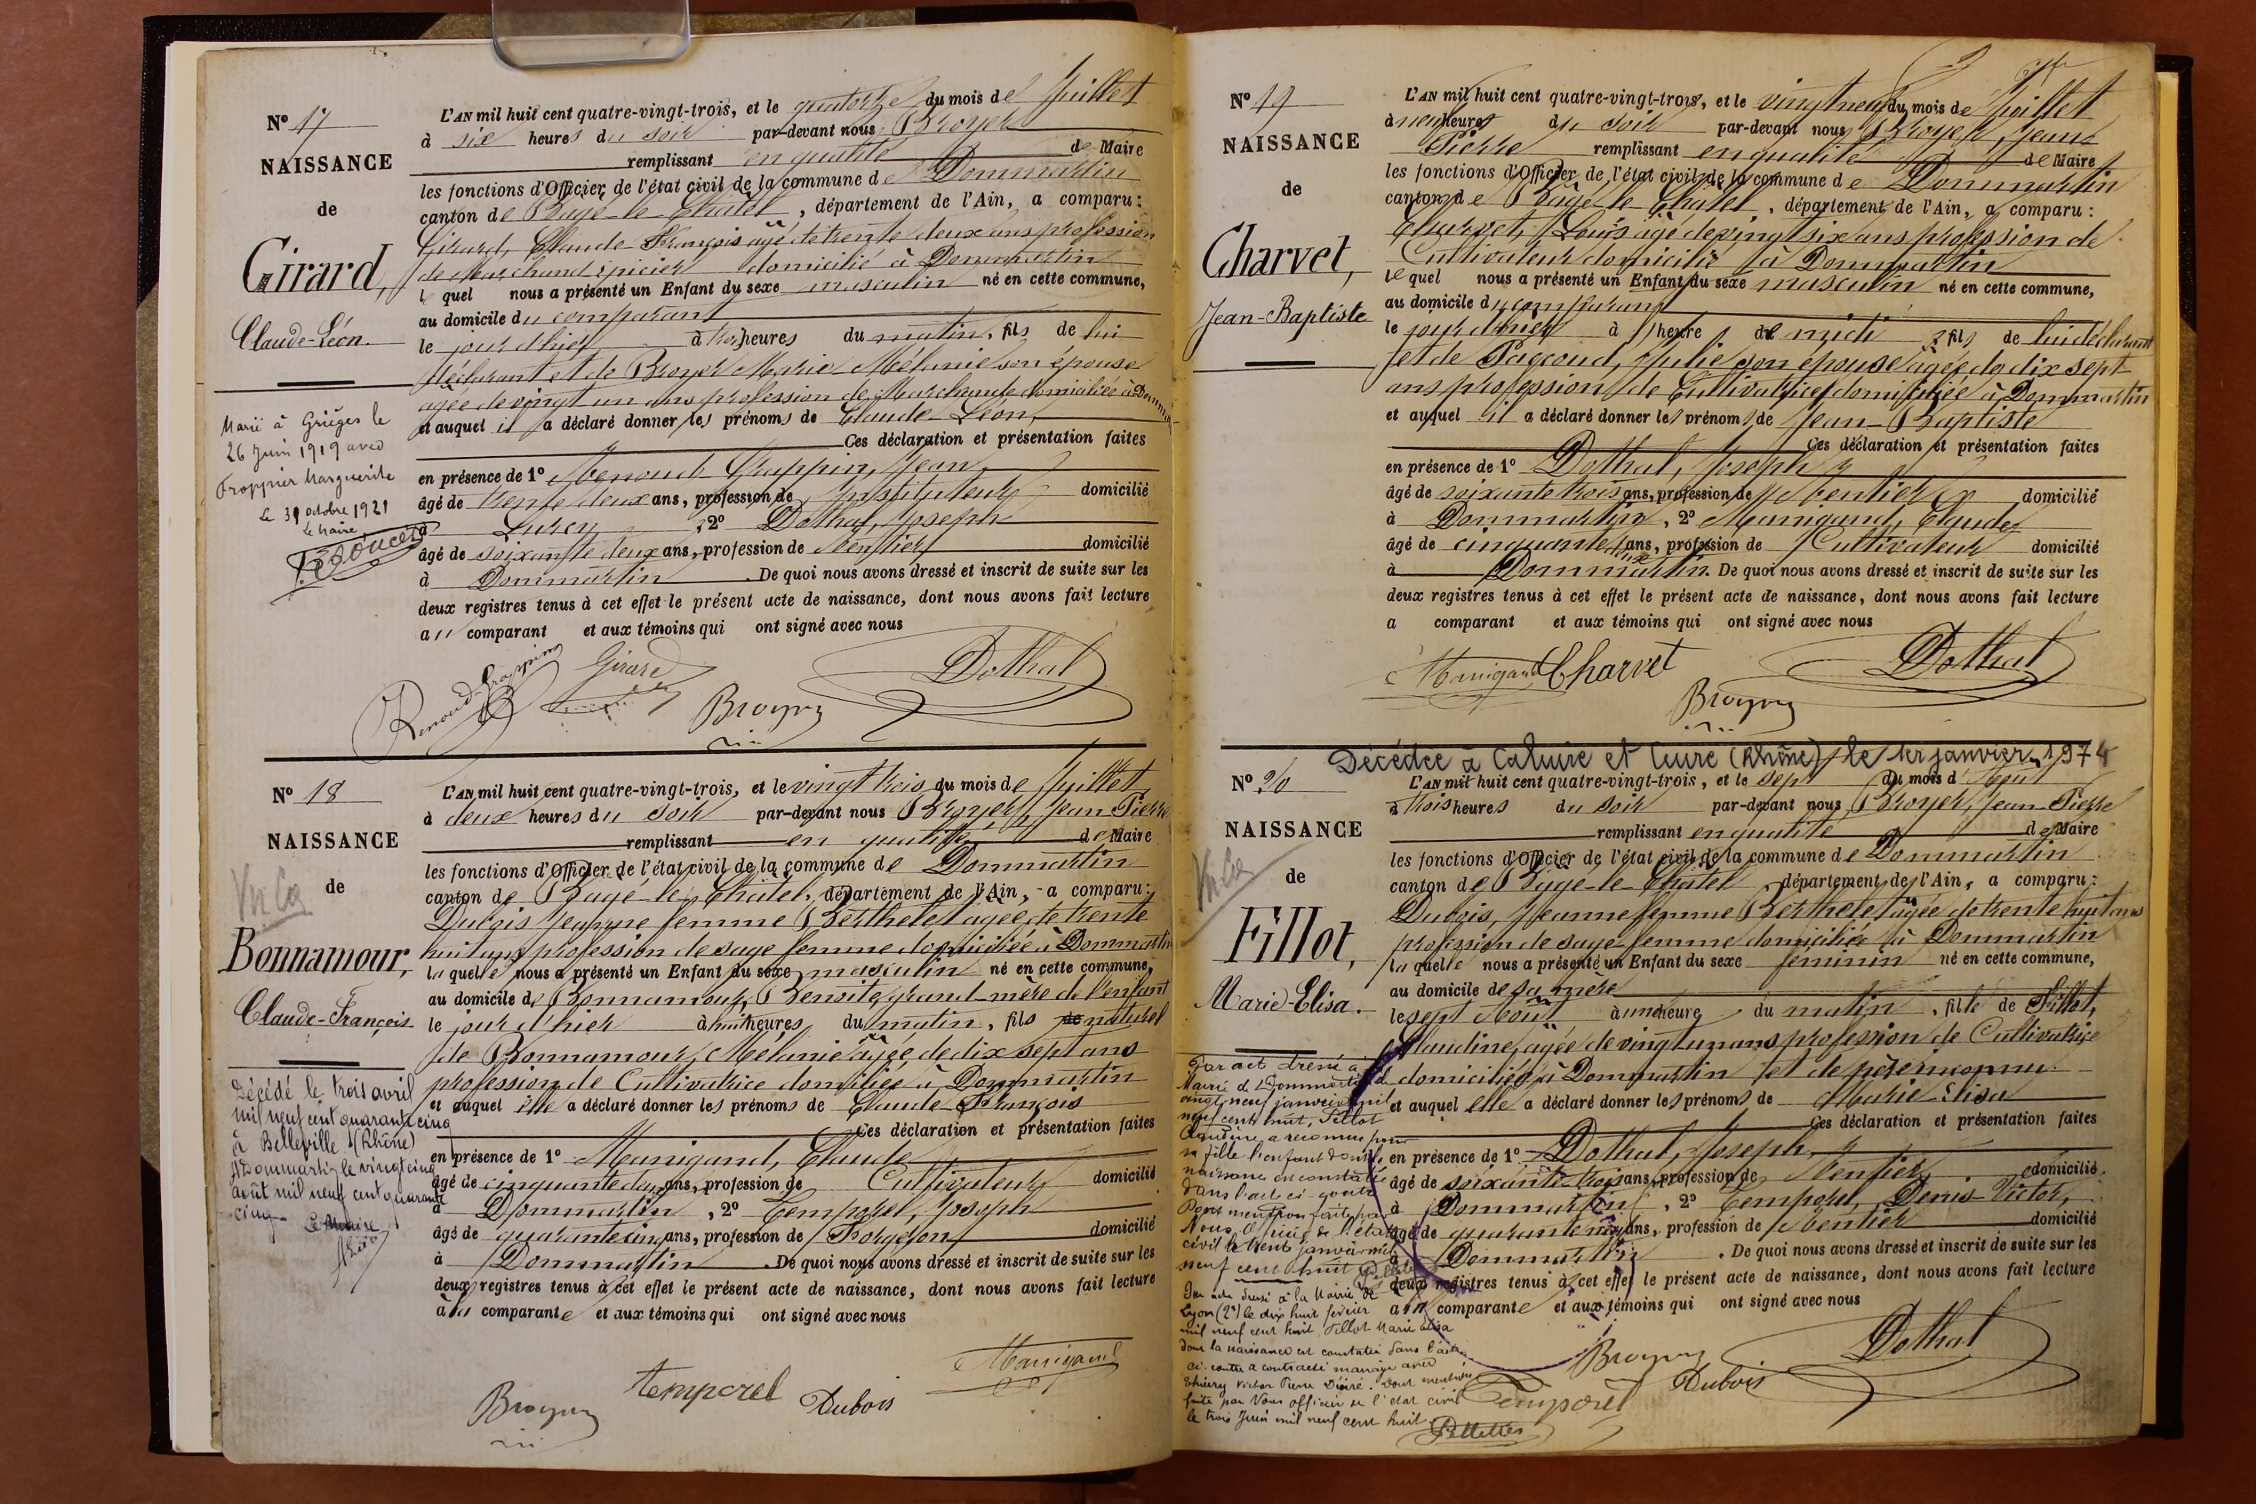 N° 17
NAISSANCE
de
Girard,
Claude-Léon.
Marié à Grièges le
26 Juin 1919 avec
Froppier Marguerite
Le 31 octobre 1921
Le Maire
L'AN mil huit cent quatre-vingt-trois, et le quatorze du mois de Juillet
à six heures du soir par-devant nous Broyer
remplissant en qualité de Maire
les fonctions d'Officier de l'état civil de la commune de Dommartin
canton de Bagé-le-Châtel, département de l'Ain, a comparu:
Girard, Claude-François agé de trente deux ans profession
de Marchand épicier domicilié à Dommartin
lequel nous a présenté un Enfant du sexe masculin né en cette commune,
au domicile du comparant
le jour d'hier à trois heures du matin, fils de lui
déclarant et de Broyer Marie Mélanie son épouse
agée de vingt un ans profession de Marchande domiciliée à Dommartin
et auquel il a déclaré donner les prénoms de Claude-Léon,
Ces déclaration et présentation faites
en présence de 1° Renoud-Grappin, Jean,
âgé de trente deux ans, profession de Instituteur domicilié
à Lurcy, 2° Dothal, Joseph
âgé de soixante deux ans, profession de Rentier domicilié
à Dommartin. De quoi nous avons dressé et inscrit de suite sur les
deux registres tenus à cet effet le présent acte de naissance, dont nous avons fait lecture
au comparant et aux témoins qui ont signé avec nous
Renoud-Grappin Girard Broyer Dothal
N° 18
NAISSANCE
de
Bonnamour,
Claude-François.
Décédé le trois avril
mil neuf cent quarante cinq
à Belleville (Rhône)
Dommartin le vingt cinq
août mil neuf cent quarante
cinq Le Maire
L'AN mil huit cent quatre-vingt-trois, et le vingt trois du mois de Juillet
à deux heures du soir par-devant nous Broyer, Jean-Pierre
remplissant en qualité de Maire
les fonctions d'Officier de l'état civil de la commune de Dommartin
canton de Bagé-le-Châtel, département de l'Ain, a comparu:
Dubois Jeanne femme Berthelet agée de trente
huit ans profession de sage femme domiciliée à Dommartin
laquelle nous a présenté un Enfant du sexe masculin né en cette commune,
au domicile de Bonnamour, Benoite, grand-mère de l'enfant
le jour d'hier à huit heures du matin, fils de naturel
de Bonnamour, Mélanie agée de dix sept ans
profession de Cultivatrice domiliée à Dommartin
et auquel elle a déclaré donner les prénoms de Claude-François
Ces déclaration et présentation faites
en présence de 1° Manigand, Claude
âgé de cinquante deux ans, profession de Cultivateur domicilié
à Dommartin, 2° Temporel, Joseph
âgé de quarante cinq ans, profession de Forgeron domicilié
à Dommartin. De quoi nous avons dressé et inscrit de suite sur les
deux registres tenus à cet effet le présent acte de naissance, dont nous avons fait lecture
à la comparante et aux témoins qui ont signé avec nous
Broyer temporel Dubois Manigand
N° 19
NAISSANCE
de
Charvet,
Jean-Baptiste
L'AN mil huit cent quatre-vingt-trois, et le vingt neuf du mois de Juillet
à neuf heures du soir par-devant nous Broyer, Jean
Pierre remplissant en qualité de Maire
les fonctions d'Officier de l'état civil de la commune de Dommartin
canton de Bagé-le-Châtel, département de l'Ain, a comparu:
Charvet, Louis agé de vingt six ans profession de
Cultivateur domicilié à Dommartin
lequel nous a présenté un Enfant du sexe masculin né en cette commune,
au domicile du comparant
le jour d'hier à heure de midi fils de lui déclarant
et de Pagoud, Julie son épouse agée de dix sept
ans profession de Cultivatrice domiciliée à Dommartin
et auquel il a déclaré donner les prénoms de Jean-Baptiste
Ces déclaration et présentation faites
en présence de 1° Dothal, Joseph
âgé de soixante trois ans, profession de Rentier domicilié
à Dommartin, 2° Manigand, Claude
âgé de cinquante deux ans, profession de Cultivateur domicilié
à Dommartin. De quoi nous avons dressé et inscrit de suite sur les
deux registres tenus à cet effet le présent acte de naissance, dont nous avons fait lecture
a comparant et aux témoins qui ont signé avec nous
Manigand Charvet Broyer Dothal
Décédée à Caluire et Cuire (Rhône) le 1er janvier 1974
N° 20
NAISSANCE
de
Fillot,
Marie-Elisa.
Par acte dressé à la
Mairie de Dommartin le
vingt neuf janvier mil
neuf cent huit, Fillot
Claudine a reconnu pour
sa fille l'enfant dont la
naissance est constatée
dans l'acte ci-contre
Dont mention faite par
Nous, Officier de l'état
civil le trente janvier mil
neuf cent huit
Par acte dressé à la Mairie de
Lyon (2e) le dix huit février
mil neuf cent huit, Fillot Marie Elisa
dont la naissance est constatée dans l'acte
ci-contre a contracté mariage avec
Thierry Victor Pierre Désiré. Dont mention
faite par Nous officier de l'état civil
le trois Juin mil neuf cent huit.
L'AN mil huit cent quatre-vingt-trois, et le sept du mois d'Aout
à trois heures du soir par-devant nous Broyer, Jean-Pierre
remplissant en qualité de Maire
les fonctions d'Officier de l'état civil de la commune de Dommartin
canton de Bagé-le-Châtel, département de l'Ain, a comparu:
Dubois, Jeanne femme Berthelet agée de trente huit ans
profession de sage-femme domiciliée à Dommartin
laquelle nous a présenté un Enfant du sexe féminin né en cette commune,
au domicile de sa mère
le sept Aout à une heure du matin, fille de Fillot,
Claudine, agée de vingt un ans profession de Cultivatrice
domiciliée à Dommartin et de père inconnu.
et auquel elle a déclaré donner les prénoms de Marie-Elisa
Ces déclaration et présentation faites
en présence de 1° Dothal, Joseph,
âgé de soixante trois ans, profession de Rentier domicilié
à Dommartin, 2° Temporel, Denis-Victor,
âgé de quarante ans, profession de Rentier domicilié
à Dommartin. De quoi nous avons dressé et inscrit de suite sur les
deux registres tenus à cet effet le présent acte de naissance, dont nous avons fait lecture
à la comparante et aux témoins qui ont signé avec nous
Broyer Dubois Dothal
Temporel